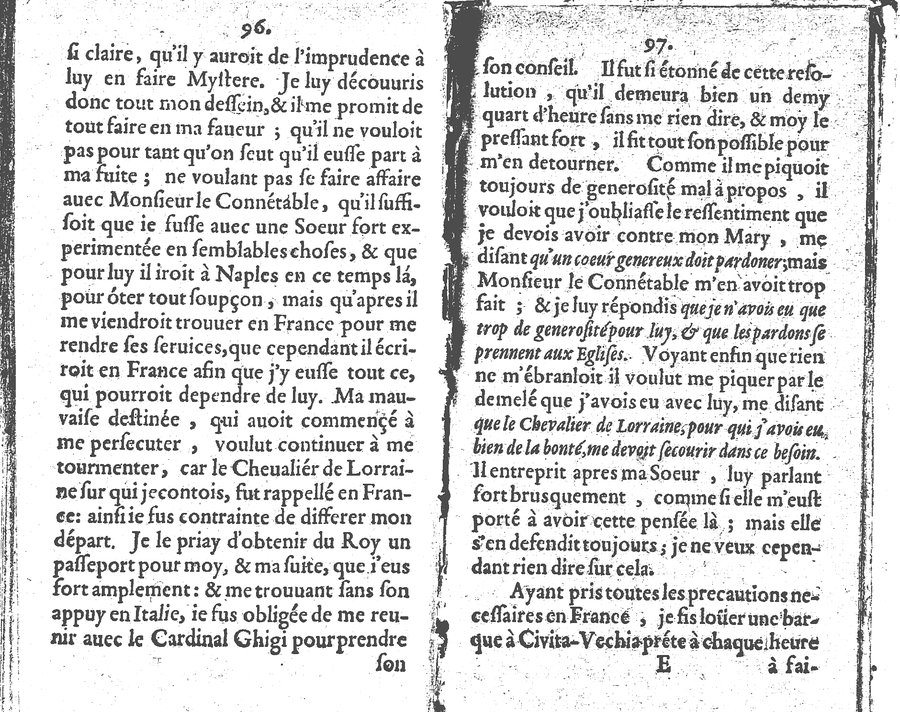 96.
si claire, qu'il y auroit de l'imprudence à
luy en faire Mystere. Je luy découuris
donc tout mon dessein, & il me promit de
tout faire en ma faueur ; qu'il ne vouloit
pas pour tant qu'on sçut qu'il eusse part à
ma fuite ; ne voulant pas se faire affaire
auec Monsieur le Connétable, qu'il suffi-
soit que ie fusse auec une Soeur fort ex-
perimentée en semblables choses, & que
pour luy il iroit à Naples en ce temps lá,
pour óter tout soupçon, mais qu'apres il
me viendroit trouuer en France pour me
rendre ses seruices, que cependant il écri-
roit en France afin que j'y eusse tout ce,
qui pourroit dependre de luy. Ma mau-
vaise destinée , qui auoit commençé à
me persecuter , voulut continuer à me
tourmenter, car le Cheualiér de Lorrai-
ne sur qui je contois, fut rappellé en Fran-
ce: ainsi ie fus contrainte de differer mon
départ. Je le priay d'obtenir du Roy un
passeport pour moy, & ma suite, que i'eus
fort amplement: & me trouuant sans son
appuy en Italie, ie fus obligée de me reu-
nir auec le Cardinal Ghigi pour prendre
son
97.
son conseil. Il fut si étonné de cette reso-
lution , qu'il demeura bien un demy
quart d'heure sans me rien dire, & moy le
pressant fort , il fit tout son possible pour
m'en detourner. Comme il me piquoit
toujours de generosité mal à propos , il
vouloit que j'oubliasse le ressentiment que
je devois avoir contre mon Mary , me
disant qu'un coeur genereux doit pardoner; mais
Monsieur le Connétable m'en avoit trop
fait ; & je luy répondis que je n'avois eu que
trop de generosité pour luy, & que les pardons se
prennent aux Eglises. Voyant enfin que rien
ne m'ébranloit il voulut me piquer par le
demelé que j'avois eu avec luy, me disant
que le Chevalier de Lorraine, pour qui j'avois eu,
bien de la bonté, me devoit secourir dans ce besoin.
Il entreprit apres ma Soeur , luy parlant
fort brusquement , comme si elle m'eust
porté à avoir cette pensée là ; mais elle
s'en defendit toujours ; je ne veux cepen-
dant rien dire sur cela.
Ayant pris toutes les precautions ne-
cessaires en France , je fis loüer une bar-
que à Civita-Vechia préte à chaque heure
E à fai-